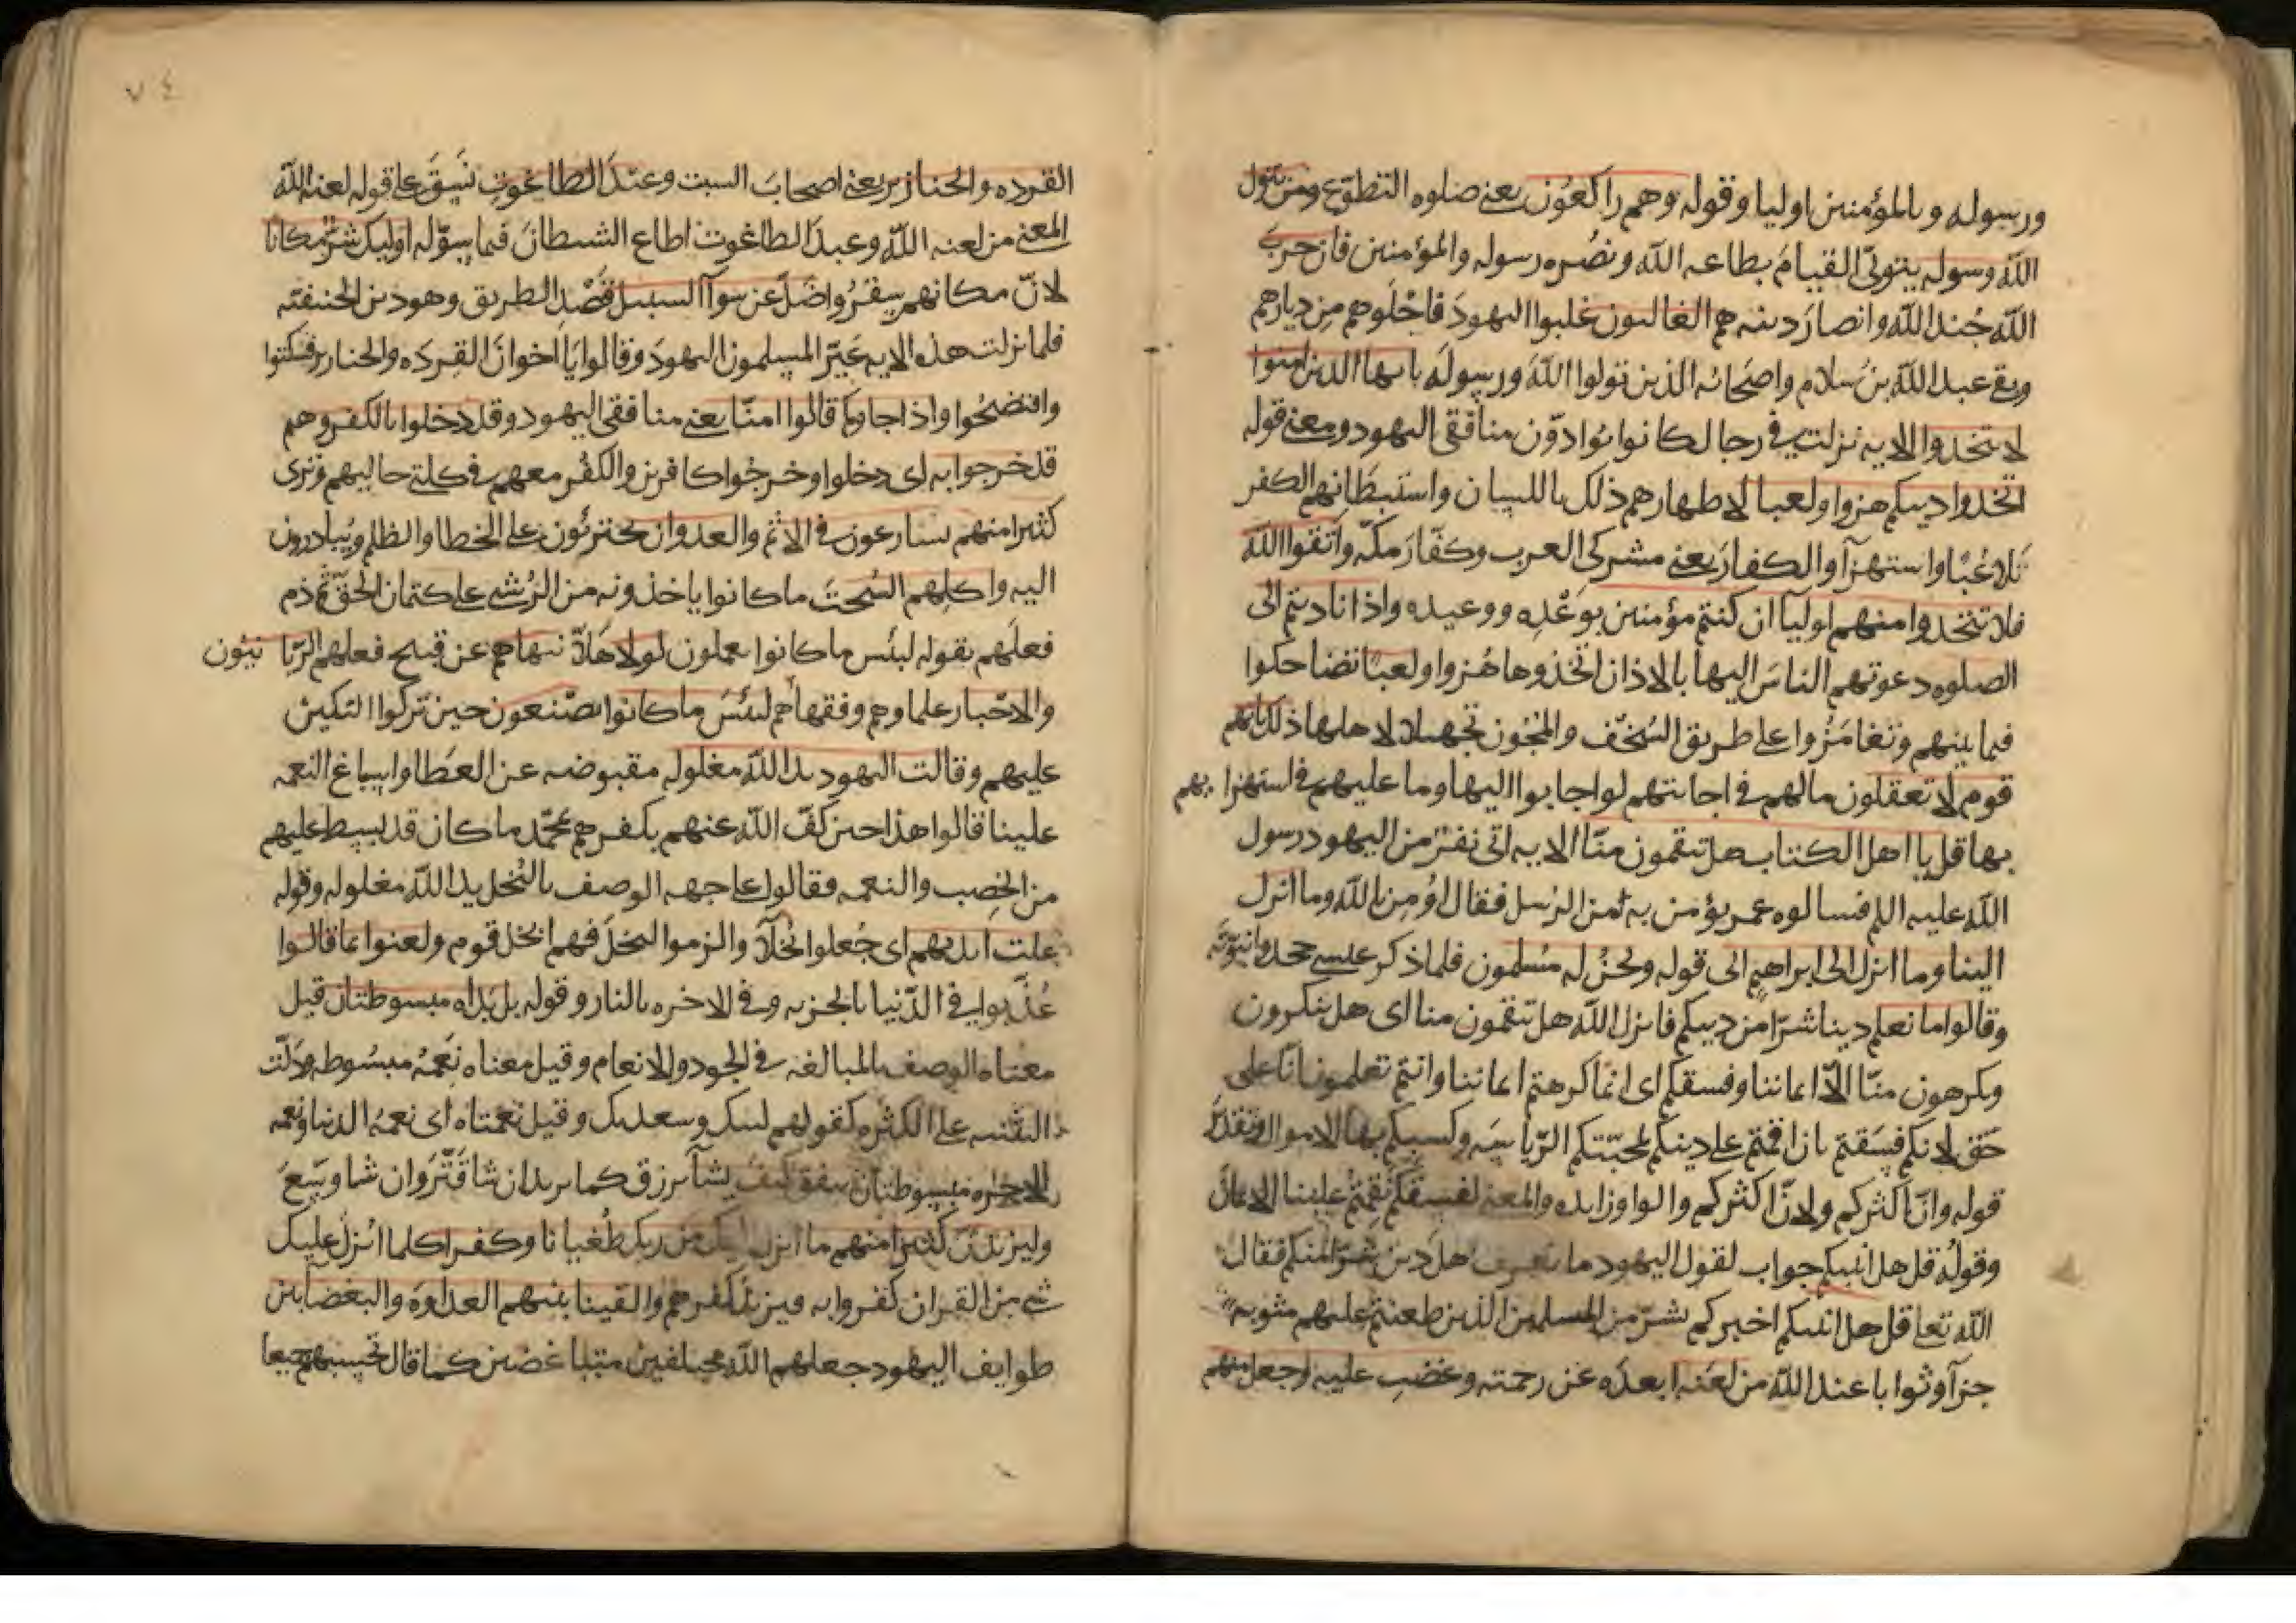 ورسوله وبالمؤمنين اوليا وقوله وهم راكعون يعني صلوه التطوع ومن يتول
الله ورسوله يتولى القيام بطاعه الله ونصره رسوله والمؤمنين فان حزب
الله جند الله وانصار دينه هم الغالبون غلبوا اليهود فاجلوهم من ديارهم
وبقي عبد الله بن سلام واصحابه الذين تولوا الله ورسوله يا يها الذين امنوا
لا تتخذوا الايه نزلت في رجال كانوا يوادون منافقي اليهود ومعنى قوله
اتخذوا دينكم هزوا ولعبا لاظهارهم ذلك باللسان واستبطانهم الكفر
تلاعبا واستهزآ والكفار يعني مشركي العرب وكفار مكه واتقوا الله
فلا تتخذوا منهم اوليآ ان كنتم مؤمنين بوعده ووعيده واذا ناديتم الى
الصلوه دعوتهم الناس اليها بالاذان اتخذوها هزوا ولعبا تضاحكوا
فيما بينهم وتغامزوا على طريق السخف والمجون تجهيلا لاهلها ذلك بانهم
قوم لا تعقلون مالهم في اجابتهم لو اجابوا اليها وما عليهم في استهزايهم
بها قل يا اهل الكتاب هل تنقمون منا الايه اتى نفر من اليهود رسول
الله عليه اللم فسالوه عمن يؤمن به من الرسل فقال اومن بالله وما انزل
الينا وما انزل الى ابراهيم الى قوله ونحن له مسلمون فلما ذكر عيسى جحدوا نبوته
وقالوا ما نعلم دينا شرا من دينكم فانزل الله هل تنقمون منا اى هل تنكرون
وتكرهون منا الا ايماننا وفسقكم اى انما كرهتم ايماننا وانتم تعلمون انا على
حق لانكم فسقتم بان اقمتم على دينكم لمحبتكم الرياسه وكسبكم بها الاموال وتقدير
قوله وان اكثركم ولان اكثركم والواو زايده والمعنى لفسقكم نقمتم علينا الايمان
وقوله قل هل انبيكم جواب لقول اليهود ما نعرف اهل دين شرا منكم فقال
الله تعا قل هل انبيكم اخبركم بشر من المسلمين الذين طعنتم عليهم مثوبه
جزآ وثوابا عند الله من لعنه ابعده عن رحمته وغضب عليه وجعل منهم
٧٤
القرده والخنازير يعني اصحاب السبت وعبد الطاغوت نسق على قوله لعنه الله
المعنى من لعنه الله وعبد الطاغوت اطاع الشيطان فيما سوله اوليك شر مكانا
لان مكانهم سقر واضل عن سوآ السبيل قصد الطريق وهو دين الحنيفيه
فلما نزلت هذه الايه عير المسلمون اليهود وقالوا يا اخوان القرده والخنازير فسكتوا
وافتضحوا واذا جاوكم قالوا امنا يعني منافقي اليهود وقد دخلوا بالكفر وهم
قد خرجوا به اى دخلوا وخرجوا كافرين والكفر معهم في كلتي حاليهم وترى
كثيرا منهم يسارعون في الاثم والعدوان يجترئون على الخطا والظلم ويبادرون
اليه واكلهم السحت ما كانوا ياخذونه من الرشى على كتمان الحق ثم ذم
فعلهم بقوله لبئس ما كانوا يعملون لولا هلا ينهاهم عن قبيح فعلهم الربانيون
والاحبار علماوهم وفقهاهم لبئس ما كانوا يصنعون حين تركوا النكير
عليهم وقالت اليهود يد الله مغلوله مقبوضه عن العطا واسباغ النعمه
علينا قالوا هذا حين كف الله عنهم بكفرهم بمحمد ما كان قد بسط عليهم
من الخصب والنعمه فقالوا على جهه الوصف بالبخل يد الله مغلوله وقوله
غلت ايديهم اى جعلوا بخلآ والزموا البخل فهم ابخل قوم ولعنوا بما قالوا
عذبوا في الدنيا بالجزيه وفي الاخره بالنار وقوله بل يداه مبسوطتان قيل
معناه الوصف بالمبالغه في الجود والانعام وقيل معناه نعمه مبسوطه ودلت
التثنيه على الكثره كقولهم لبيك وسعديك وقيل نعمتاه اى نعمه الدنيا ونعمه
الاخره مبسوطتان ينفق كيف يشآ يرزق كما يريد ان شا قتر وان شا وسع
وليزيدن كثيرا منهم ما انزل اليك من ربك طغيانا وكفرا كلما انزل عليك
شي من القران كفروا به فيزيد كفرهم والقينا بينهم العداوه والبغضا بين
طوايف اليهود جعلهم الله مختلفين متباغضين كما قال تحسبهم جميعا